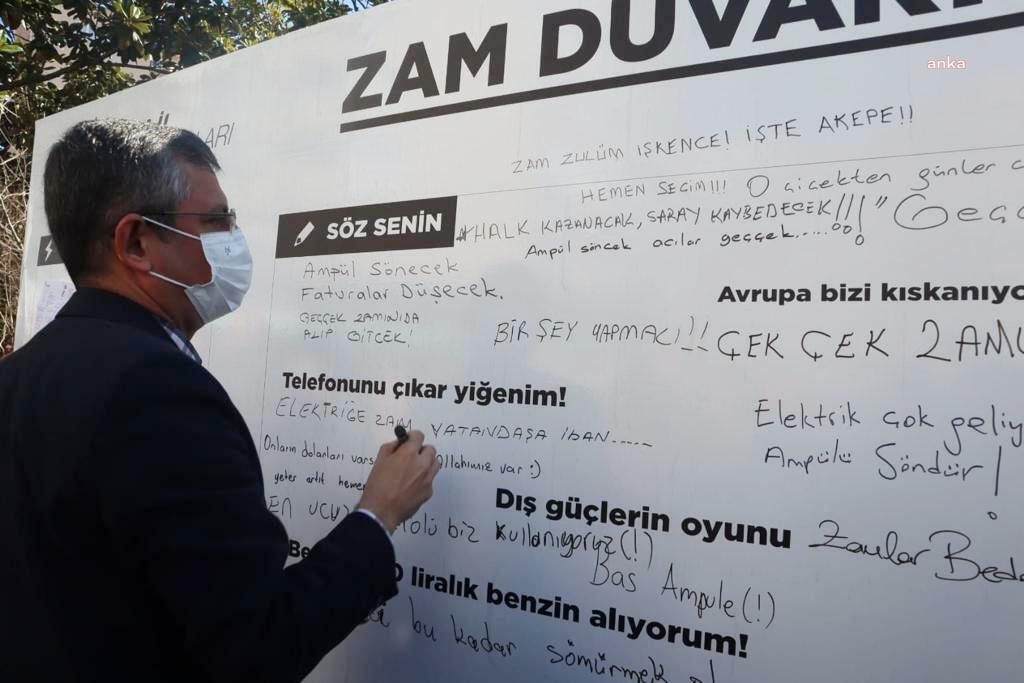 ZAM DUVARI
anka
ARI
ZAM ZULÜM İŞKENCE! İŞTE AKEPE!!
HEMEN SEÇİM!!! O çiçekten günler
SÖZ SENİN
#HALK KAZANACAK, SARAY KAYBEDECEK!!!"
Ampül söncek acılar geççek........
Ampül Sönecek
Faturalar Düşecek.
GEÇÇEK ZAMINIDA
ALIP GİTCEK!
Avrupa bizi kıskanıyo
BİR ŞEY YAPMALI!!!
ÇEK ÇEK ZAMI
Telefonunu çıkar yiğenim!
ELEKTRİĞE ZAM VATANDAŞA IBAN.....
Elektrik çok geliy
Ampülü Söndür!
Onların dolarları vars allahımız var :)
yeter artık heme
Dış güçlerin oyunu
EN UCUZ rolü biz kullanıyoruz(!)
Zamlar Bede
Bas Ampule(!)
Be 0 liralık benzin alıyorum!
bu kadar sömürmek